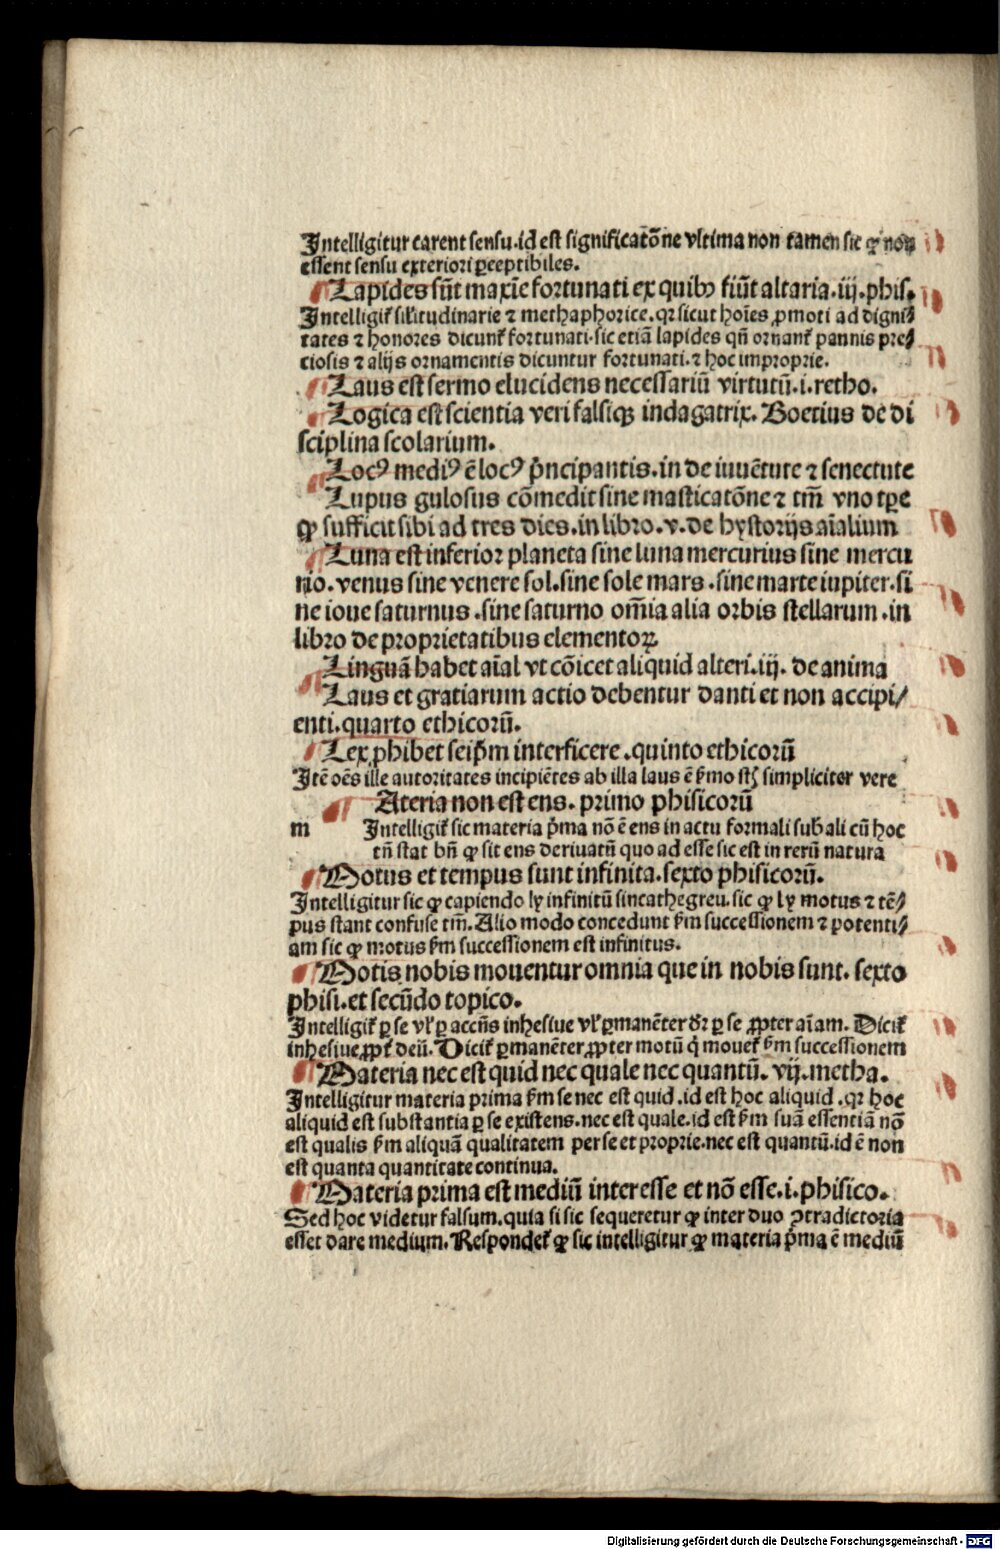 Intelligitur carent sensu.id est significatōne vltima non tamen sic ꝙ non
essent sensu exteriori ꝑceptibiles.
Lapides sūt maxīe fortunati ex quibꝫ fiūt altaria.iij.phis.
Intelligit᷑ sil̓itudinarie ⁊ methaphorice.qꝛ sicut hoīes ꝓmoti ad digni⸗
tates ⁊ honores dicunt᷑ fortunati.sic etiā lapides qn̄ ornant᷑ pannis pre⸗
ciosis ⁊ alijs ornamentis dicuntur fortunati.⁊ hoc improprie.
Laus est sermo elucidens necessariū virtutū.i.retho.
Logica est scientia veri falsiqꝫ indagatrix. Boetius de di
sciplina scolarium.
Locꝰ mediꝰ ē locꝰ p̄ncipantis.in de iuuētute ⁊ senectute
Lupus gulosus cōmedit sine masticatōne ⁊ tm̄ vno tꝑe
ꝙ sufficit sibi ad tres dies.in libro.v.de hystorijs aīalium
Luna est inferior planeta sine luna mercurius sine mercu
rio.venus sine venere sol.sine sole mars.sine marte iupiter.si
ne ioue saturnus.sine saturno om̄ia alia orbis stellarum.in
libro de proprietatibus elementoꝝ
Linguā habet aīal vt cōicet aliquid alteri.iij. de anima
Laus et gratiarum actio debentur danti et non accipi/
enti.quarto ethicorū.
Lex ꝓhibet seip̄m interficere.quinto ethicorū
Itē oēs ille autoritates incipiētes ab illa laus ē s̄mo stꝫ simpliciter vere
Ateria non est ens. primo phisicorū
m Intelligit᷑ sic materia p̄ma nō ē ens in actu formali sub̄ali cū hoc
tn̄ stat bn̄ ꝙ sit ens deriuatū quo ad esse sic est in rerū natura
Motus et tempus sunt infinita.sexto phisicorū.
Intelligitur sic ꝙ capiendo ly infinitū sincathegreu.sic ꝙ ly motus ⁊ tē⸗
pus stant confuse tm̄.Alio modo concedunt s̄m successionem ⁊ potenti⸗
am sic ꝙ motus s̄m successionem est infinitus.
Motis nobis mouentur omnia que in nobis sunt. sexto
phisi.et secūdo topico.
Intelligit᷑ ꝑ se vl̓ ꝑ accn̄s inhesiue vl̓ ꝑmanēter dr̄ ꝑ se ꝓpter aīam. Dicit᷑
inhesiue ꝓpt᷑ deū. Dicit᷑ ꝑmanēter ꝓpter motū q̇ mouet᷑ s̄m successionem
Materia nec est quid nec quale nec quantū. vij.metha.
Intelligitur materia prima s̄m se nec est quid.id est hoc aliquid.qꝛ hoc
aliquid est substantia ꝑ se existens.nec est quale.id est s̄m suā essentiā nō
est qualis s̄m aliquā qualitatem per se et proprie.nec est quantū.id ē non
est quanta quantitate continua.
Materia prima est mediū inter esse et nō esse.i.phisico.
Sed hoc videtur falsum.quia si sic sequeretur ꝙ inter duo ꝯtradictoria
esset dare medium.Respondet᷑ ꝙ sic intelligitur ꝙ materia p̄ma ē mediū
Digitalisierung gefördert durch die Deutsche Forschungsgemeinschaft - DFG